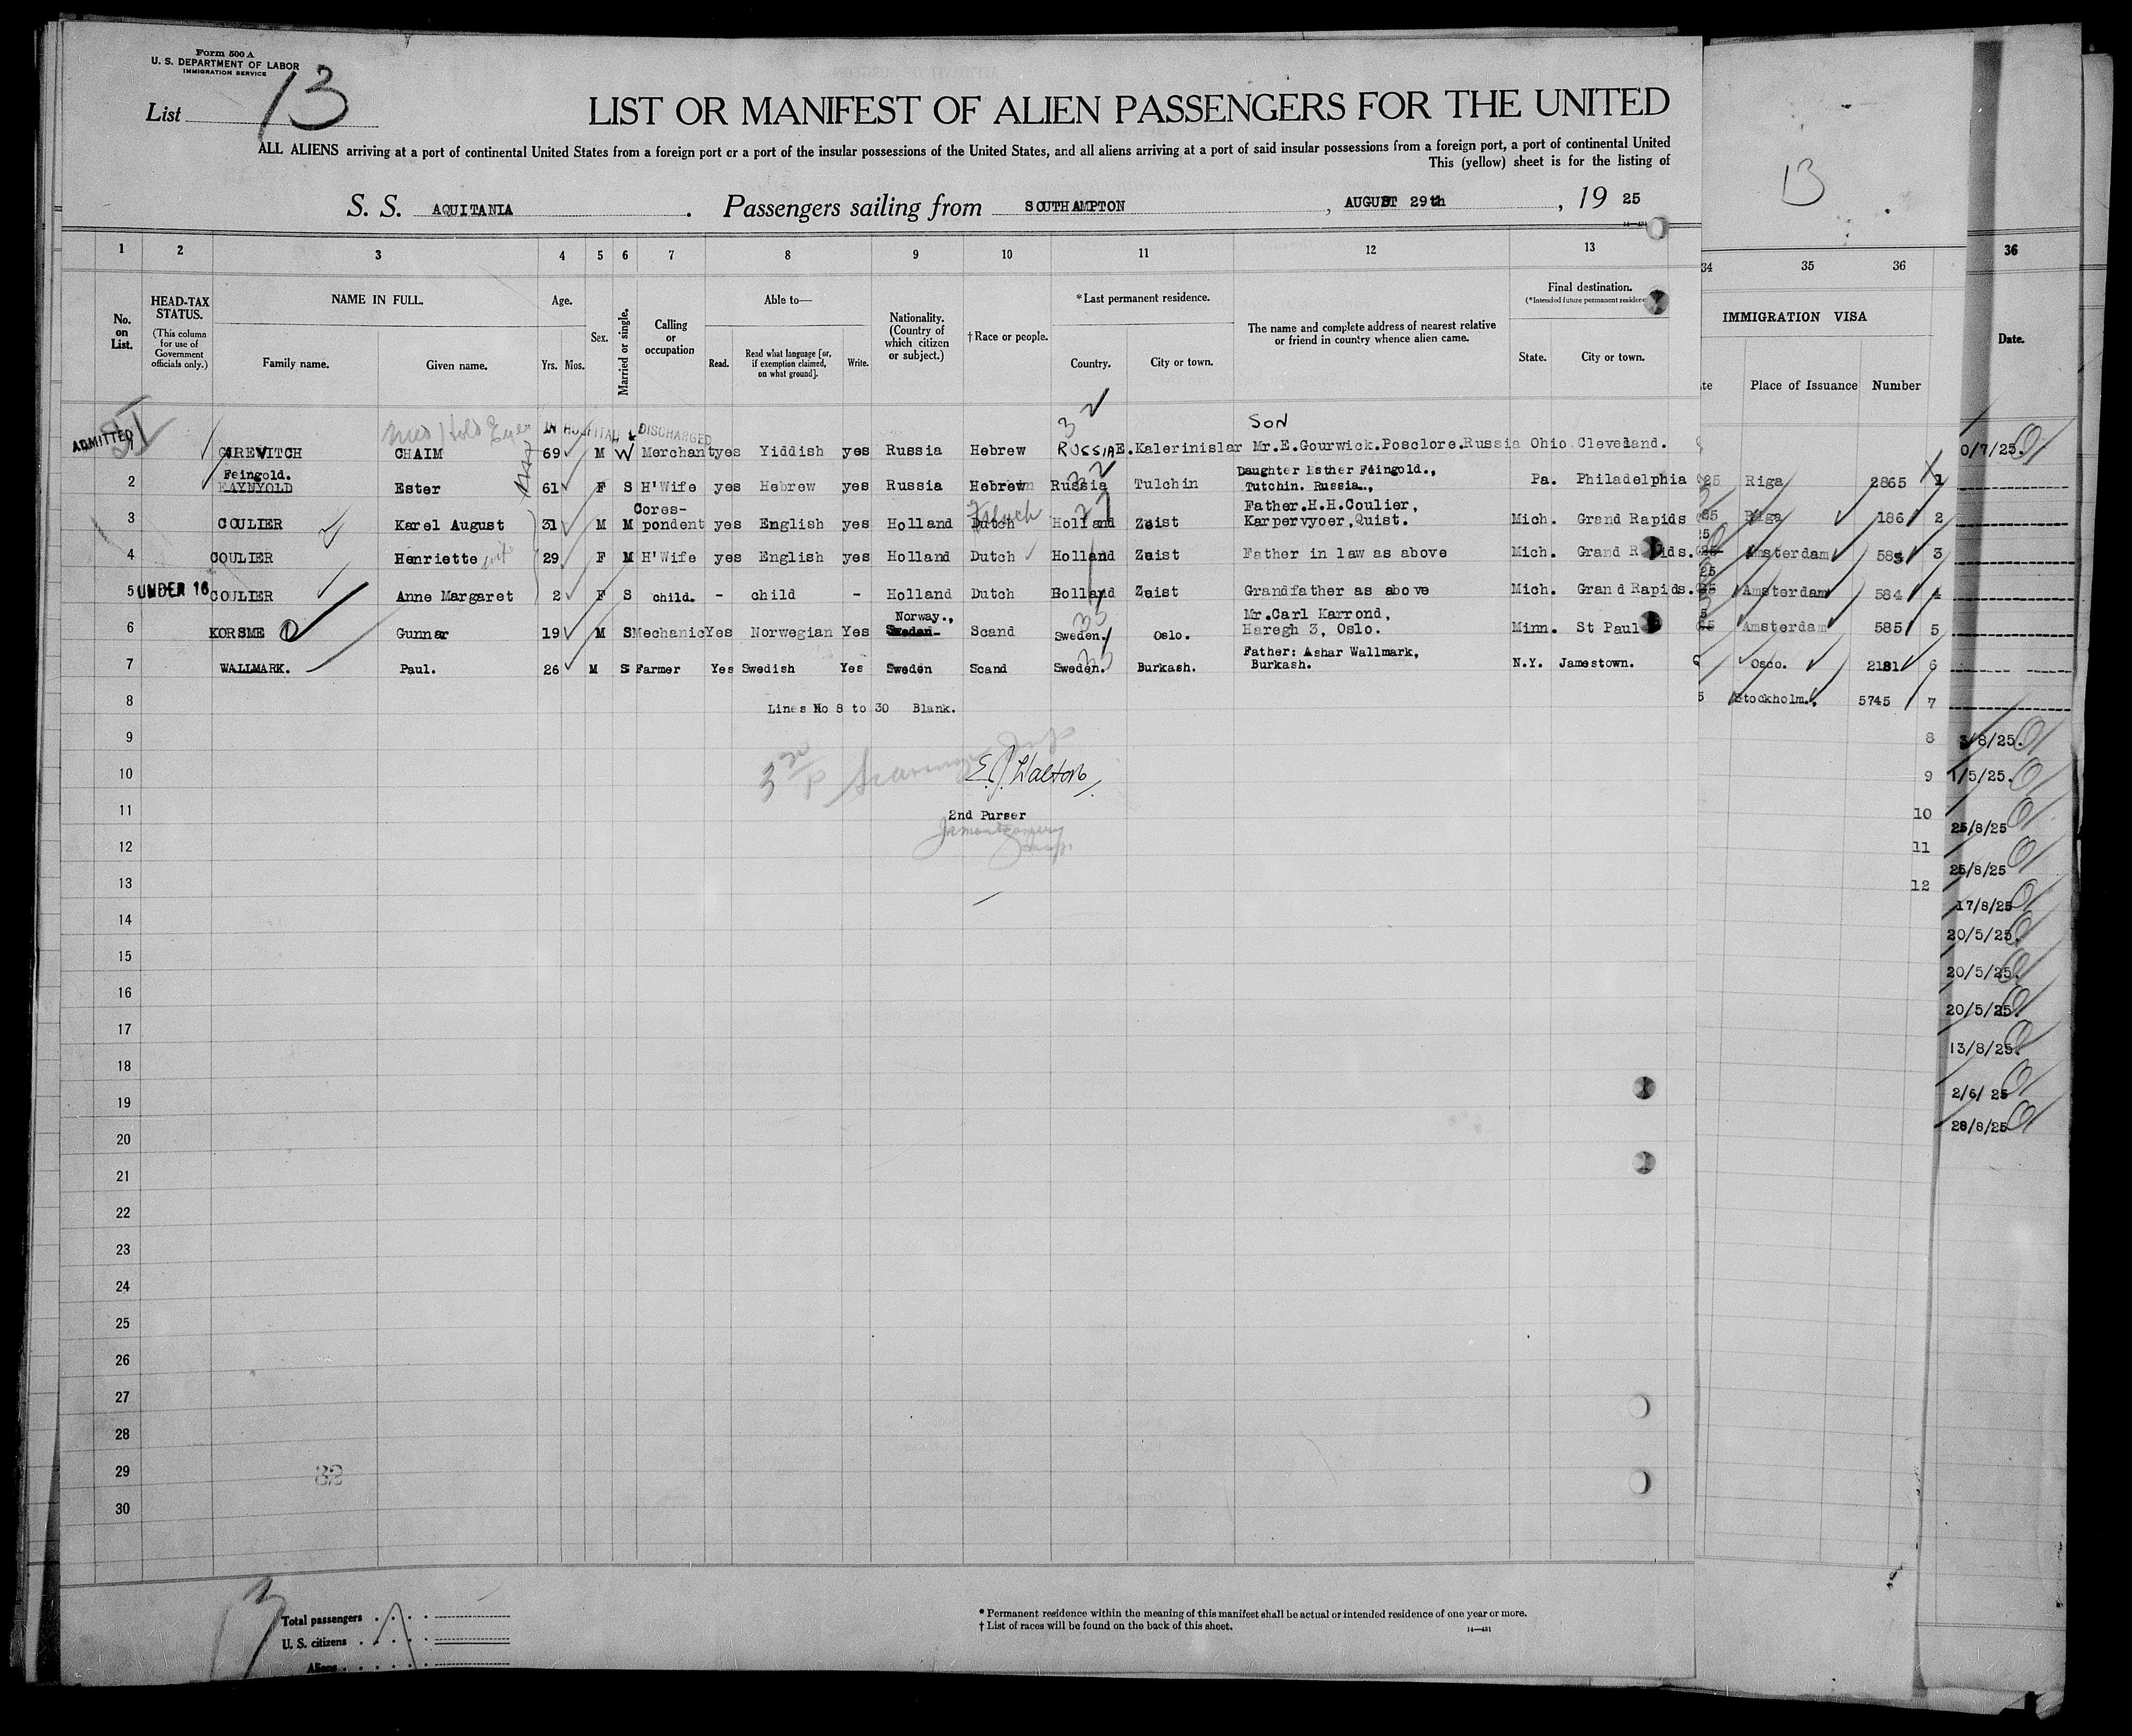 Form 500 A
U. S. DEPARTMENT OF LABOR
IMMIGRATION SERVICE
List 13
LIST OR MANIFEST OF ALIEN PASSENGERS FOR THE UNITED
ALL ALIENS arriving at a port of continental United States from a foreign port or a port of the insular possessions of the United States, and all aliens arriving at a port of said insular possessions from a foreign port, a port of continental United
This (yellow) sheet is for the listing of
S. S. AQUITANIA. Passengers sailing from SOUTHAMPTON, AUGUST 29th, 19 25
13
1 2 3 4 5 6 7 8 9 10 11 12 13
34 35 36
36
No. on List.
HEAD-TAX STATUS.
(This column for use of Government officials only.)
NAME IN FULL.
Family name. Given name.
Age.
Yrs. Mos.
Sex.
Married or single.
Calling or occupation
Able to—
Read. Read what language [or, if exemption claimed, on what ground]. Write.
Nationality. (Country of which citizen or subject.)
†Race or people.
*Last permanent residence.
Country. City or town.
The name and complete address of nearest relative or friend in country whence alien came.
Final destination.
(*Intended future permanent residence
State. City or town.
IMMIGRATION VISA
te Place of Issuance Number
Date.
ADMITTED
SI
IN HOSPITAL & DISCHARGED
SON
32
CHAIM 69 M W Merchant yes Yiddish yes Russia Hebrew RUSSIA E.Kalerinislar Mr.E.Gourwick.Posclore.Russia Ohio Cleveland.
Feingold. Daughter Esther Feingold.,
2 FAYNYOLD Ester 61 F S H'Wife yes Hebrew yes Russia Hebrew Russia Tulchin Tutchin. Russia., Pa. Philadelphia
Cores- Father.H.H.Coulier,
3 COULIER Karel August 31 M M pondent yes English yes Holland Dutch Holland Zeist Karpervyoer,Quist. Mich. Grand Rapids
4 COULIER Henriette wife 29 F M H'Wife yes English yes Holland Dutch Holland Zeist Father in law as above Mich. Grand Rapids.
5 UNDER 16 COULIER Anne Margaret 2 F S child. - child - Holland Dutch Holland Zeist Grandfather as above Mich. Grand Rapids.
Norway., Mr.Carl Karrond,
6 KORSME Gunnar 19 M S Mechanic Yes Norwegian Yes Sweden Scand Sweden. Oslo. Haregh 3, Oslo. Minn. St Paul
Father: Ashar Wallmark,
7 WALLMARK. Paul. 26 M S Farmer Yes Swedish Yes Sweden Scand Sweden. Burkash. Burkash. N.Y. Jamestown.
8 Lines No 8 to 30 Blank.
9
10
11 2nd Purser
12
13
14
15
16
17
18
19
20
21
22
23
24
25
26
27
28
29
30
32
13
Total passengers
U. S. citizens
Aliens
* Permanent residence within the meaning of this manifest shall be actual or intended residence of one year or more.
† List of races will be found on the back of this sheet.
14—431
Riga 2865 1
Riga 186 2
Amsterdam 583 3
Amsterdam 584 4
Amsterdam 585 5
Osco. 2181 6
Stockholm. 5745 7
8
9
10
11
12
0/7/25.
3/8/25.
1/5/25.
25/8/25
25/8/25
17/8/25
20/5/25.
20/5/25.
20/5/25.
13/8/25.
2/6/ 25
28/8/25